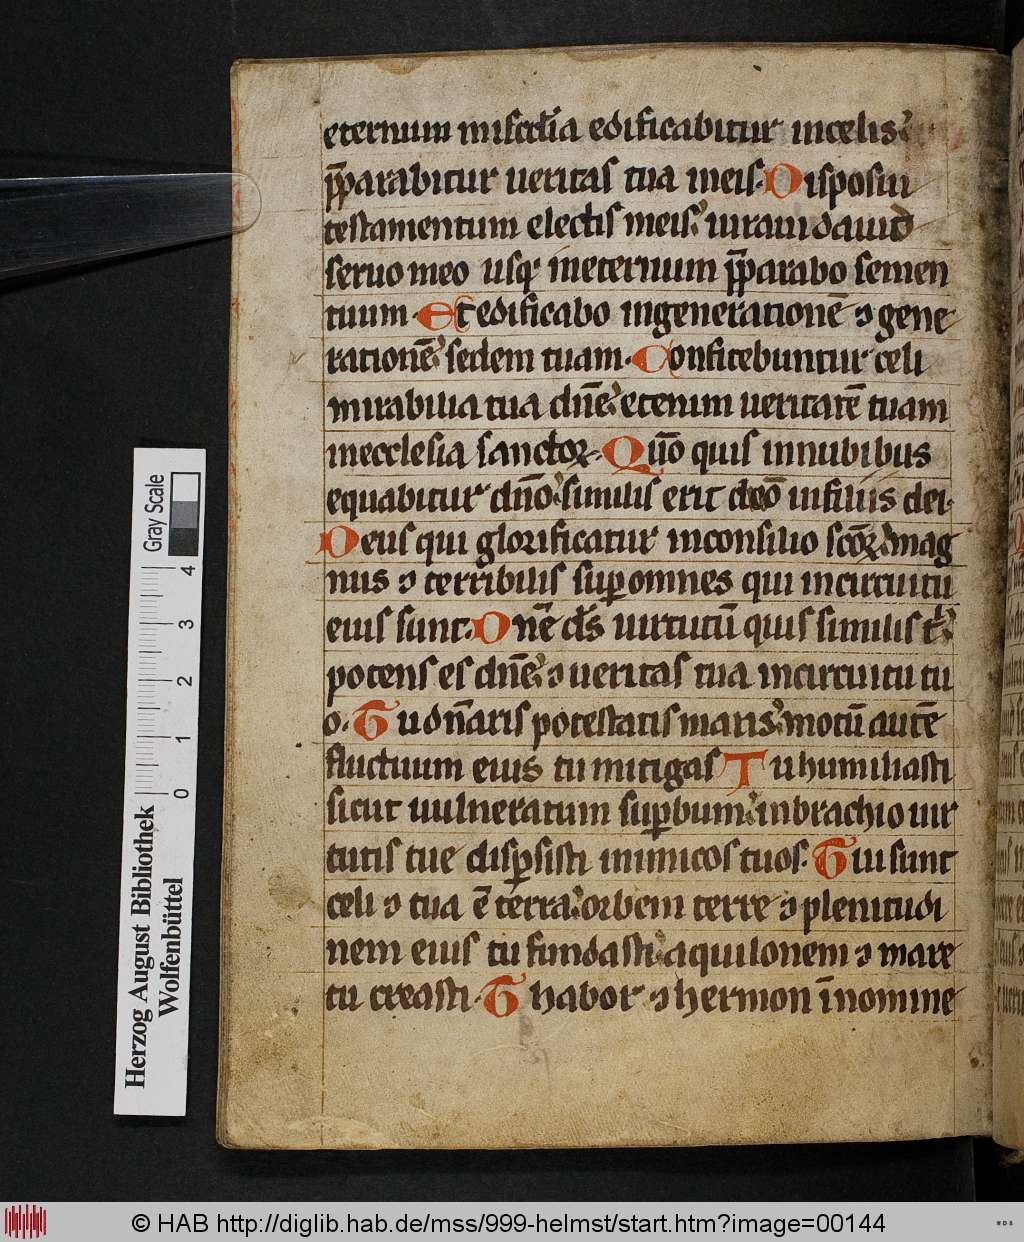 eternum mis̄cdīa edificabitur in celis
p̄parabitur ueritas tua in eis. Disposui
testamentum electis meis iuraui dauid
seruo meo usq; in eternum p̄parabo semen
tuum. Et edificabo in generationē ⁊ gene
rationē sedem tuam. Confitebuntur celi
mirabilia tua dn̄e etenim ueritatē tuam
in ecclesia sanctoꝝ. Qūo quis in nubibus
equabitur dn̄o similis erit deo in filiis dei.
Deus qui glorificatur in consilio sc̄oꝝ mag
nus ⁊ terribilis suꝑ omnes qui in circuitu
eius sunt. Dn̄e ds̄ uirtutū quis similis t̄
potens es dn̄e ⁊ ueritas tua in circuitu tu
o. Tu dn̄aris potestatis maris motū autē
fluctuum eius tu mitigas Tu humiliasti
sicut uulneratum suꝑbum in brachio uir
tutis tue disꝑsisti inimicos tuos. Tui sunt
celi ⁊ tua ē terra orbem terre ⁊ plenitudi
nem eius tu fundasti aquilonem ⁊ mare
tu creasti. Thabor ⁊ hermon ī nomine
Gray Scale
0 1 2 3 4
Herzog August Bibliothek
Wolfenbüttel
© HAB http://diglib.hab.de/mss/999-helmst/start.htm?image=00144